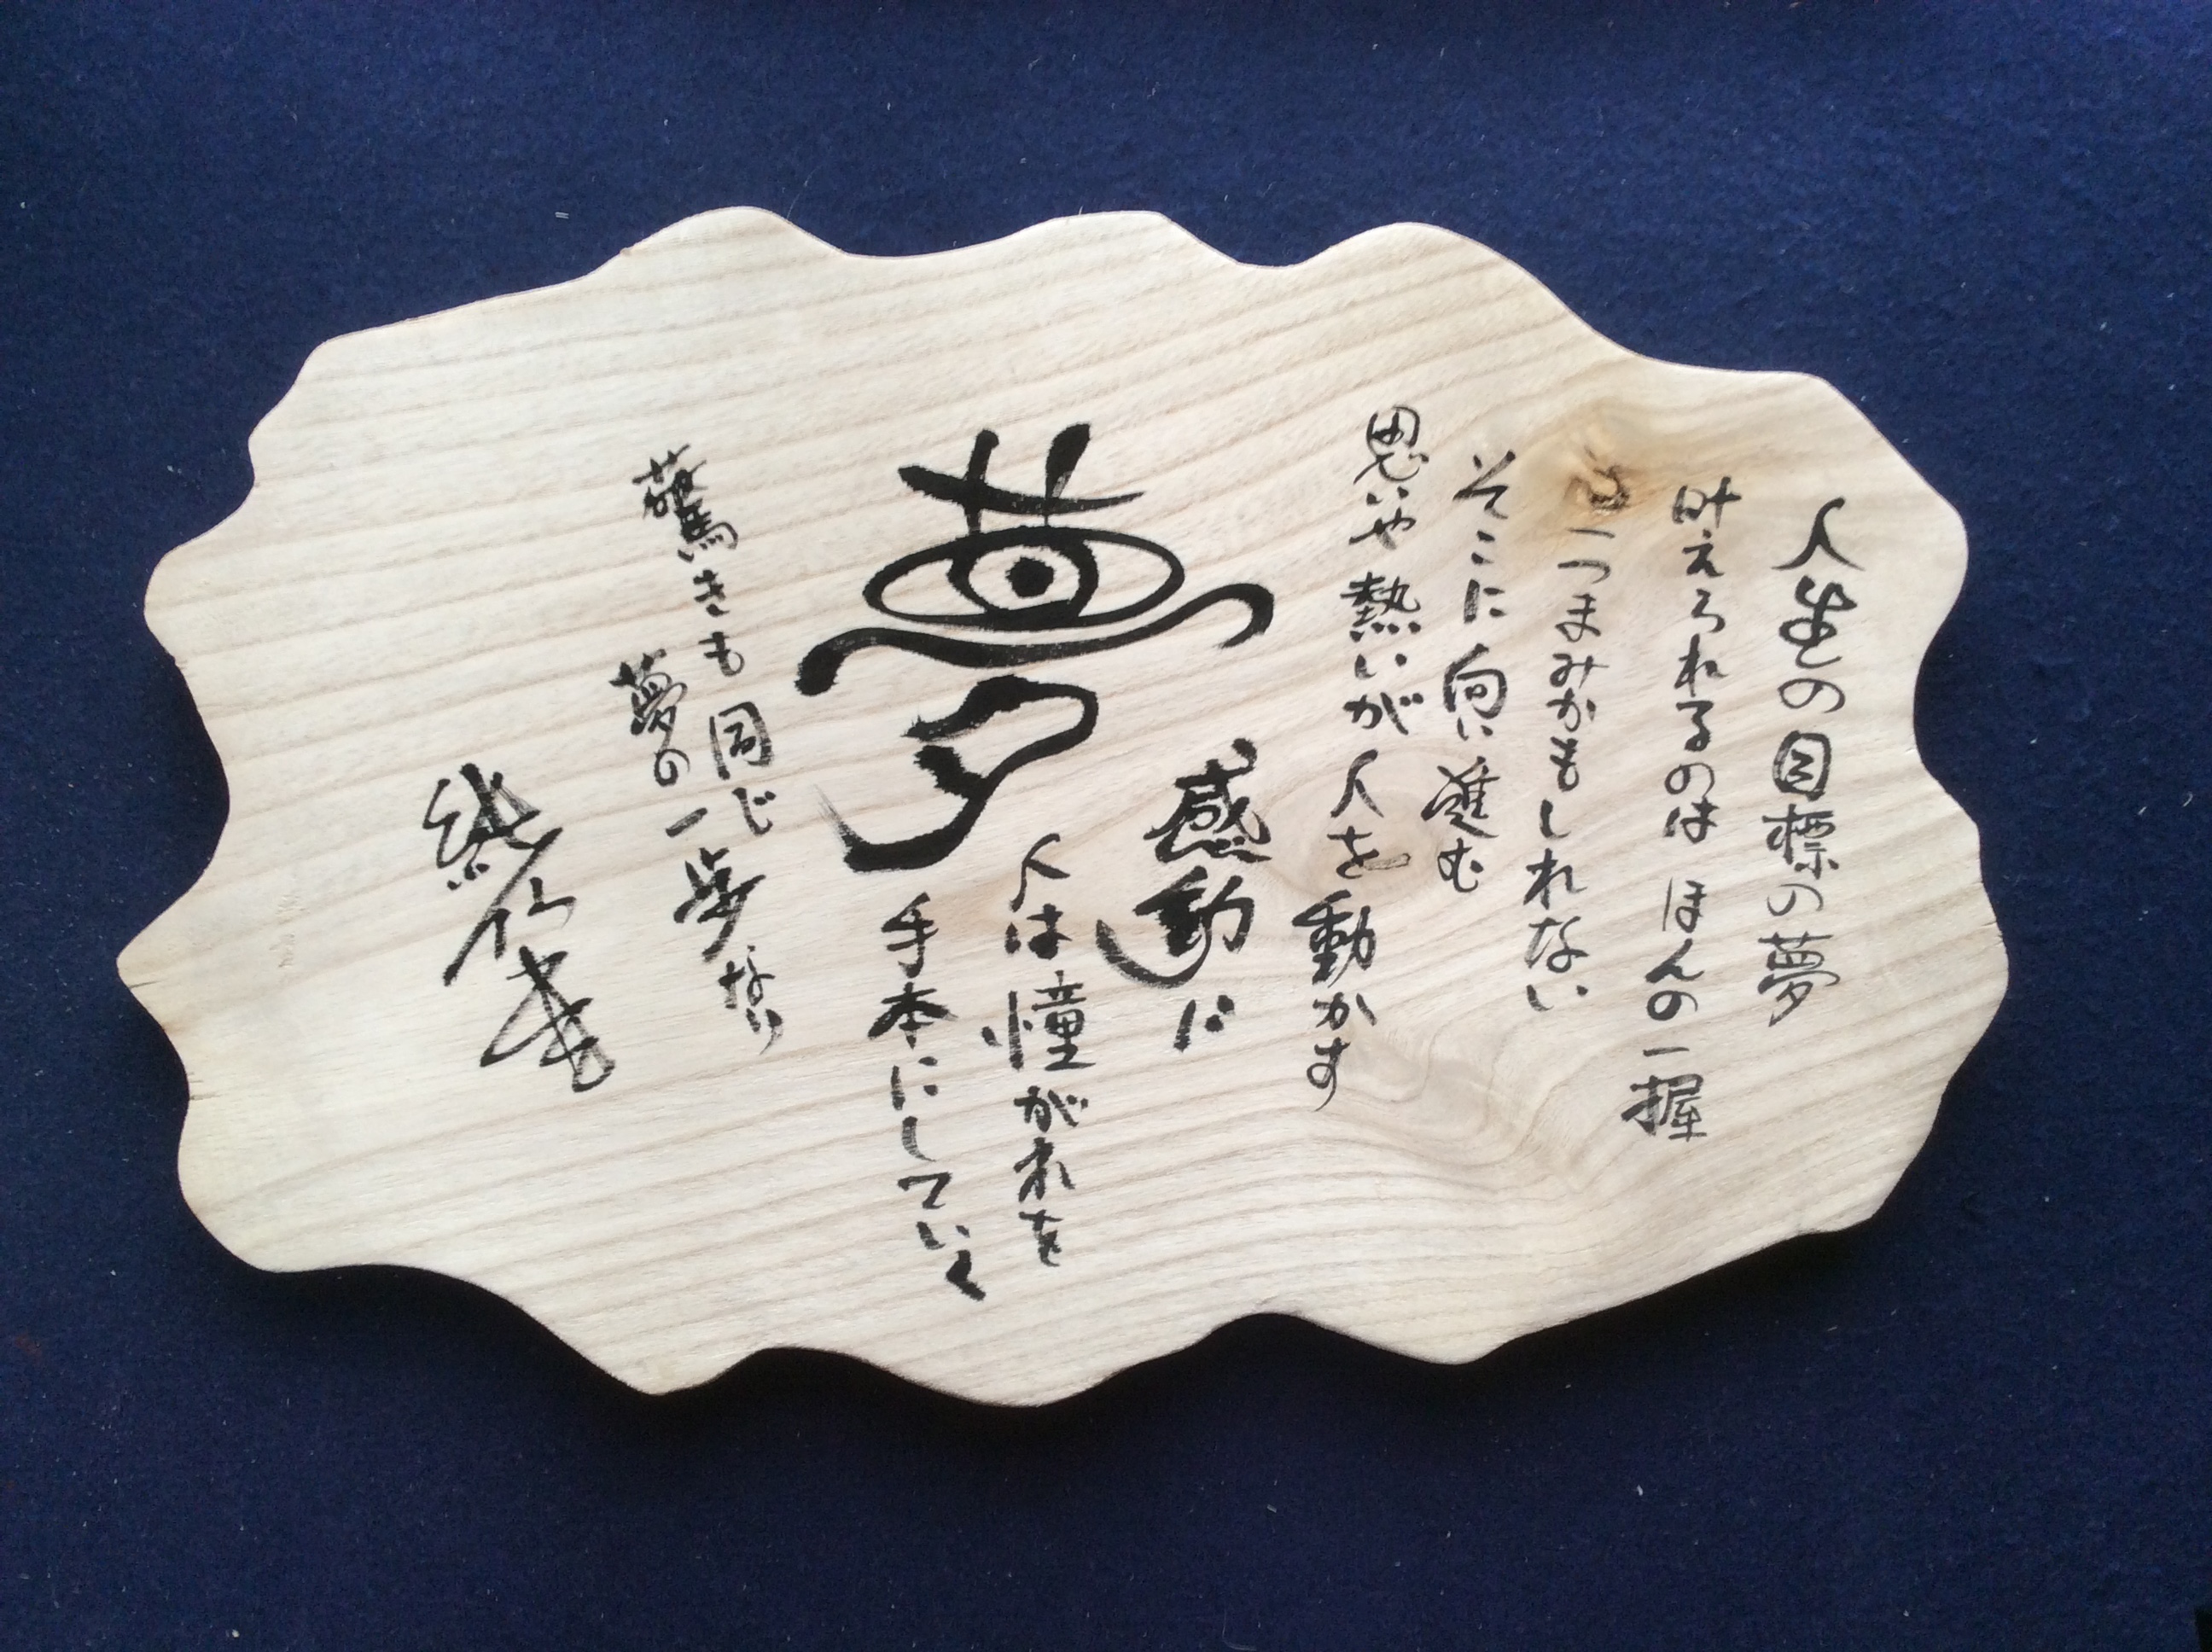 人生の目標の夢
叶えられるのは ほんの一握
一つまみかもしれない
そこに向い進む
思いや熱いが人を動かす
感動に
人は憧がれを
手本にしていく
夢
驚きも同じ
夢の一歩なり